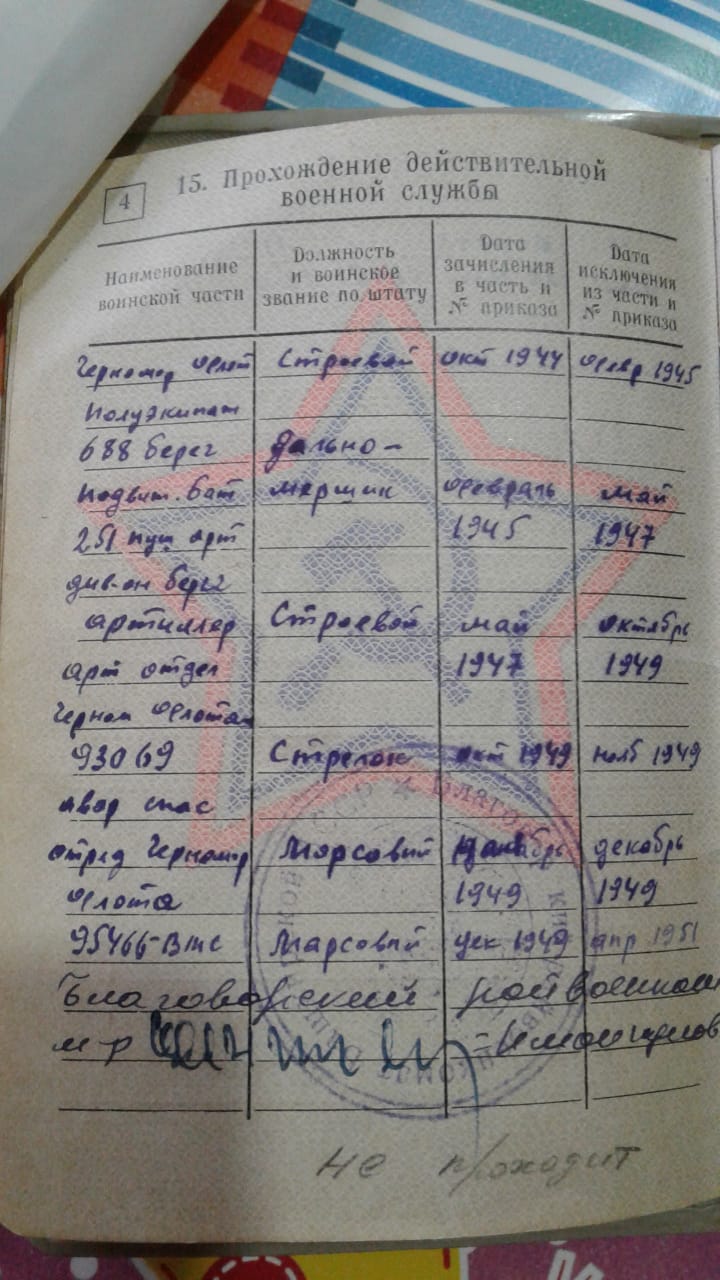 4
15. Прохождение действительной
военной службы
Наименование воинской части
Должность и воинское звание по штату
Дата зачисления в часть и № приказа
Дата исключения из части и № приказа
Черномор флот Строевой окт 1944 февр 1945
Полуэкипаж
688 берег Дально-
подвиж. бат мерщик февраль май
251 пуш арт 1945 1947
див-он берег
артиллер Строевой май октябрь
арт отдел 1947 1949
Черном флота
93069 Стрелок окт 1949 нояб 1949
авар спас
отряд Черномор Марсовый декабрь
флота 1949 1949
95466-В Марсовый дек 1949 апр 1951
Благоварский райвоенком
м-р
не проходит